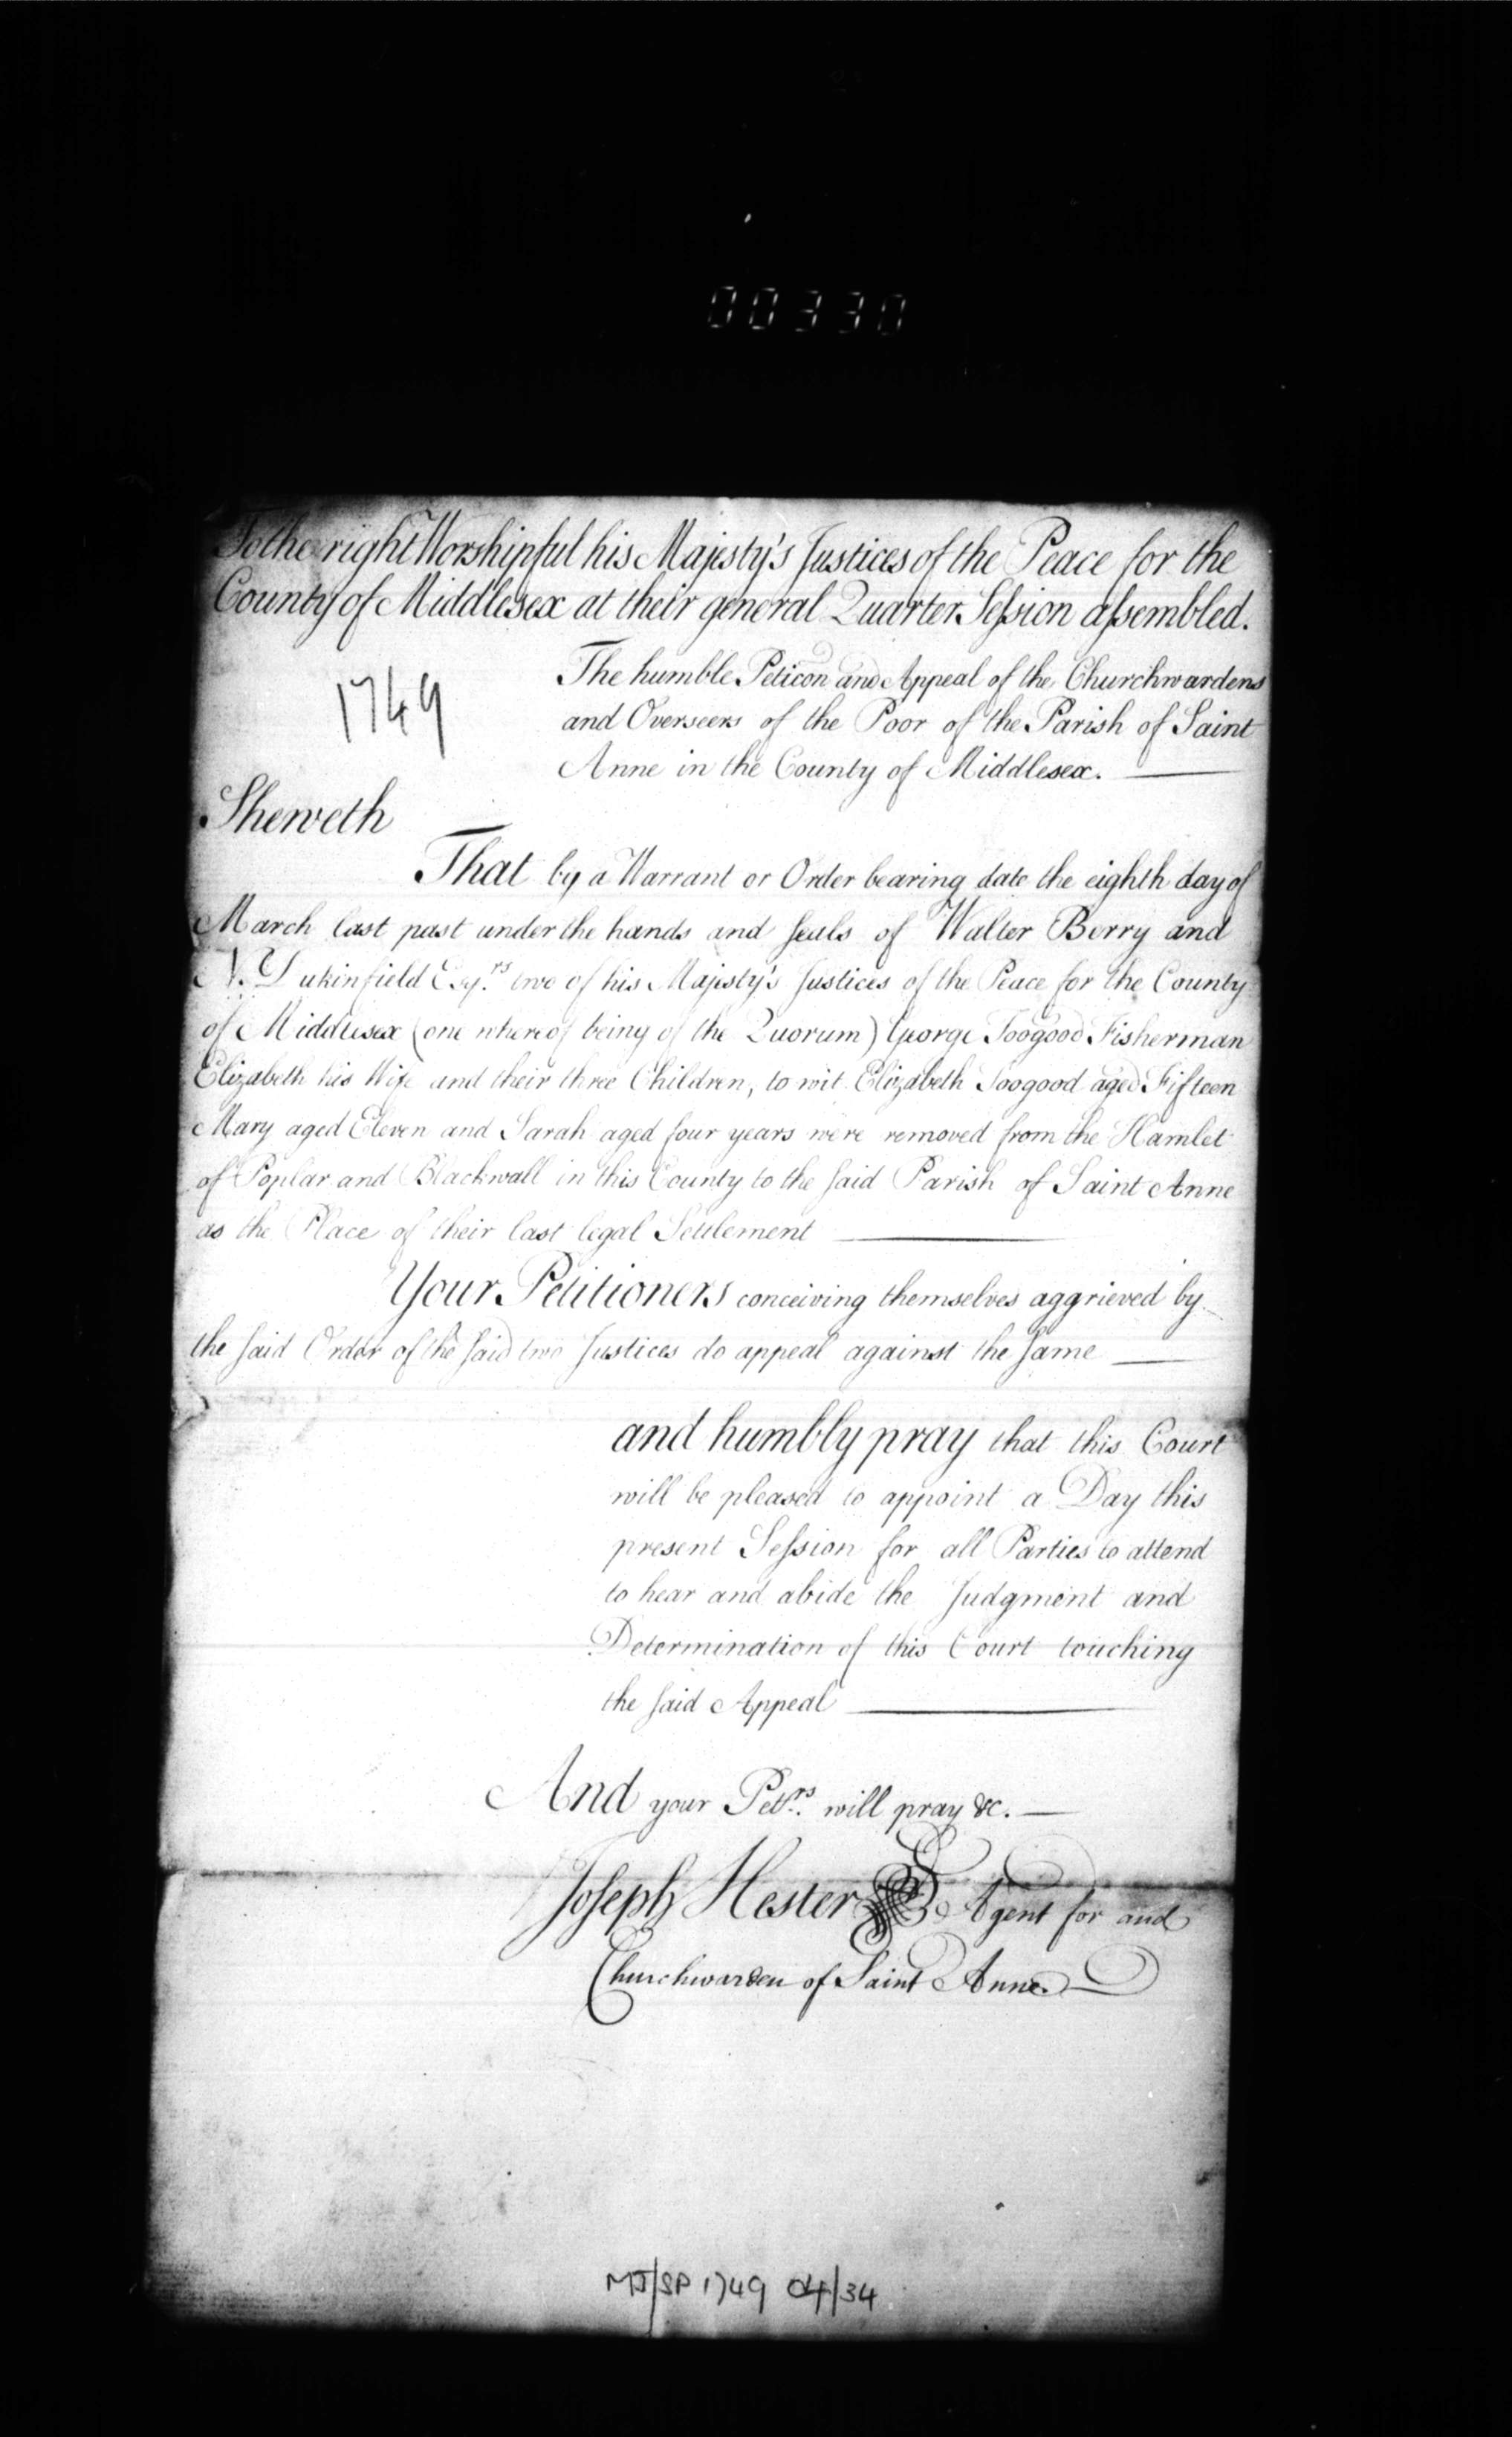 00330
To the right Worshipful his Majesty's Justices of the Peace for the
County of Middlesex at their general Quarter Session assembled.
1749
The humble Peticon and Appeal of the Churchwardens
and Overseers of the Poor of the Parish of Saint
Anne in the County of Middlesex.
Sheweth
That by a Warrant or Order bearing date the eighth day of
March last past under the hands and seals of Walter Berry and
N. Dukinfield Esqrs. two of his Majesty's Justices of the Peace for the County
of Middlesex (one whereof being of the Quorum) George Toogood Fisherman
Elizabeth his Wife and their three Children, to wit Elizabeth Toogood aged Fifteen
Mary aged Eleven and Sarah aged four years were removed from the Hamlet
of Poplar and Blackwall in this County to the said Parish of Saint Anne
as the Place of their last legal Settlement
Your Petitioners conceiving themselves aggrieved by
the said Order of the said two Justices do appeal against the same
and humbly pray that this Court
will be pleased to appoint a Day this
present Session for all Parties to attend
to hear and abide the Judgment and
Determination of this Court touching
the said Appeal
And your Petrs. will pray &c.
Joseph Hester Agent for and
Churchwarden of Saint Anne
MJ/SP 1749 04/34